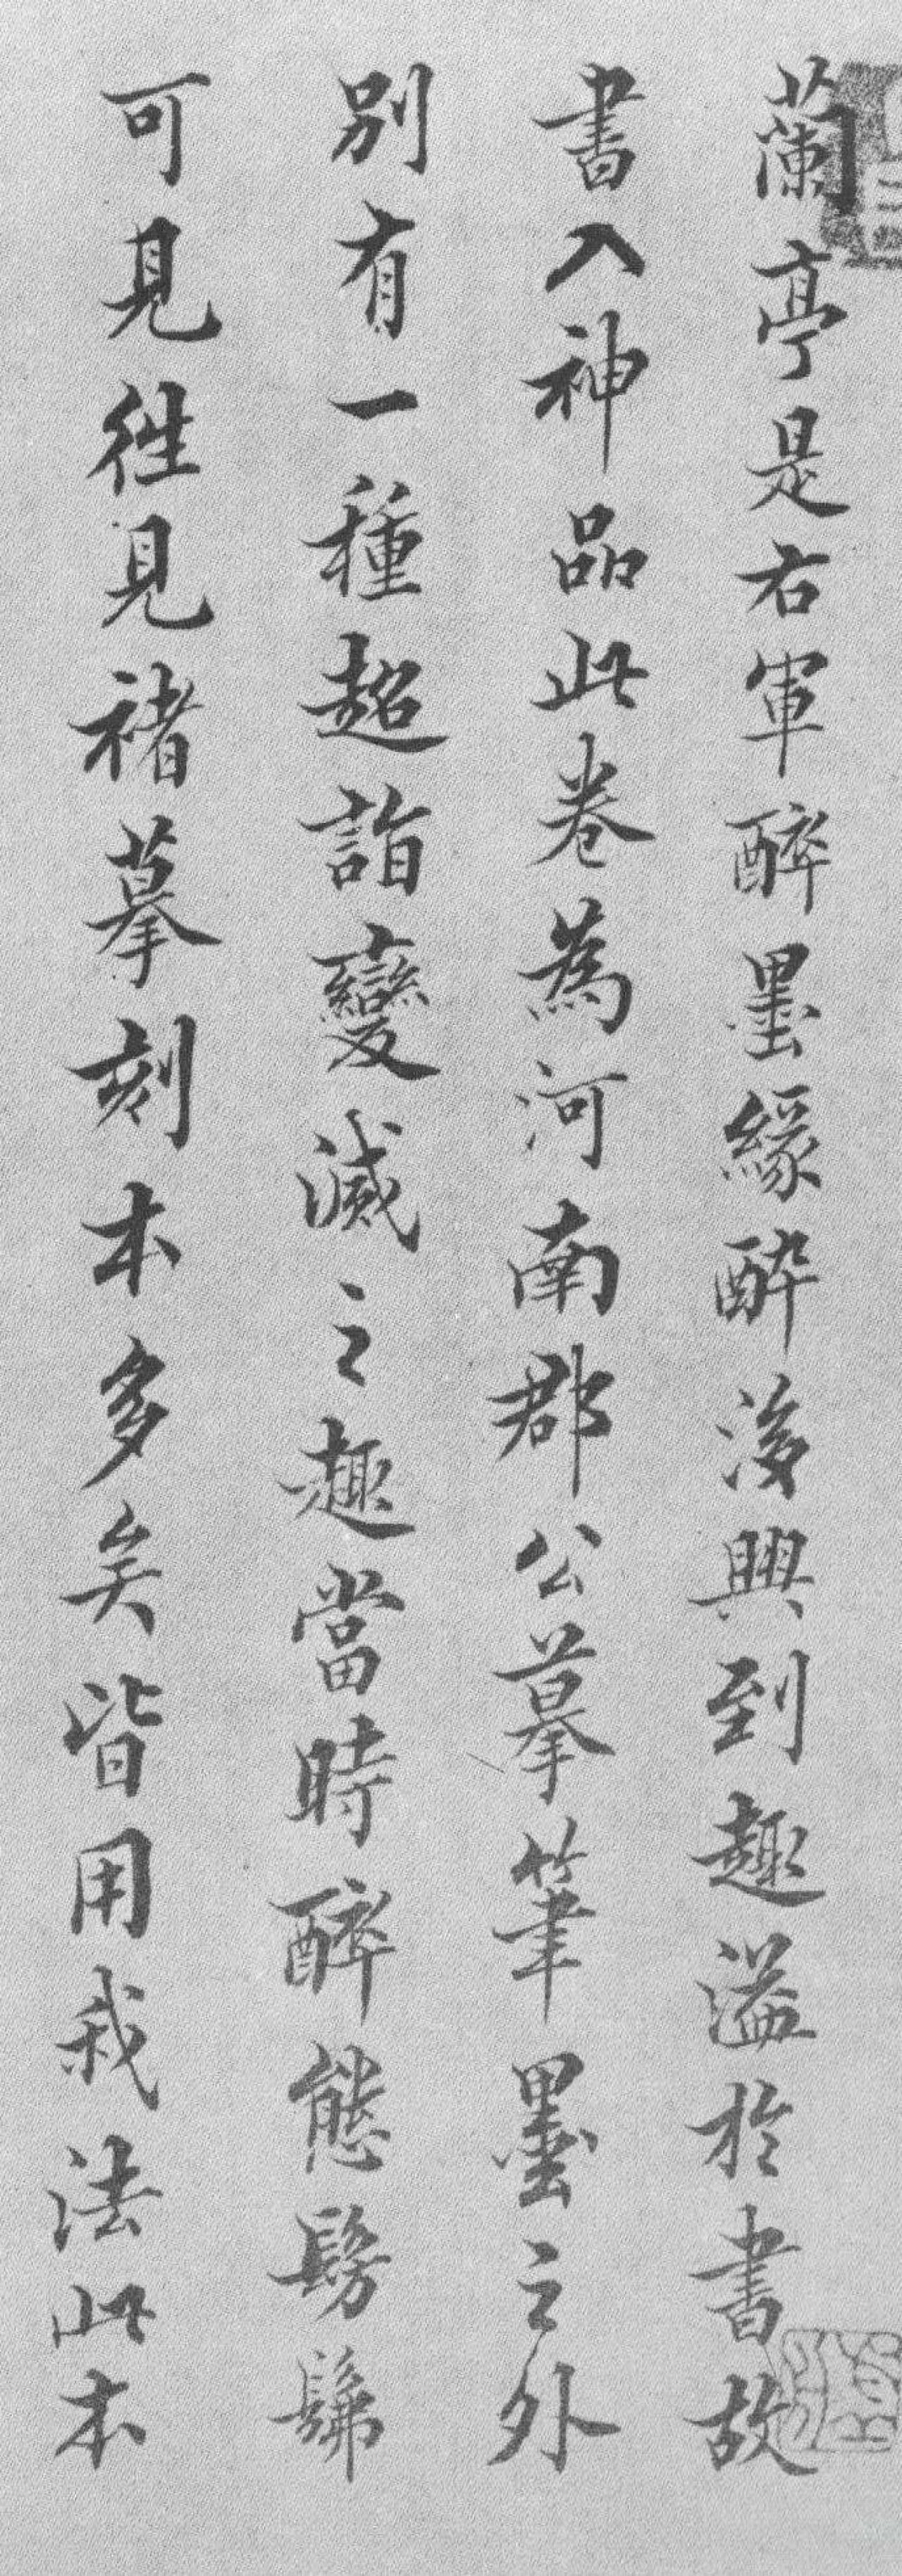 蘭亭是右軍醉墨緣醉後興到趣溢於書故
書入神品此卷為河南郡公摹筆墨之外
別有一種超詣變滅之趣當時醉態髣髴
可見往見褚摹刻本多矣皆用我法此本